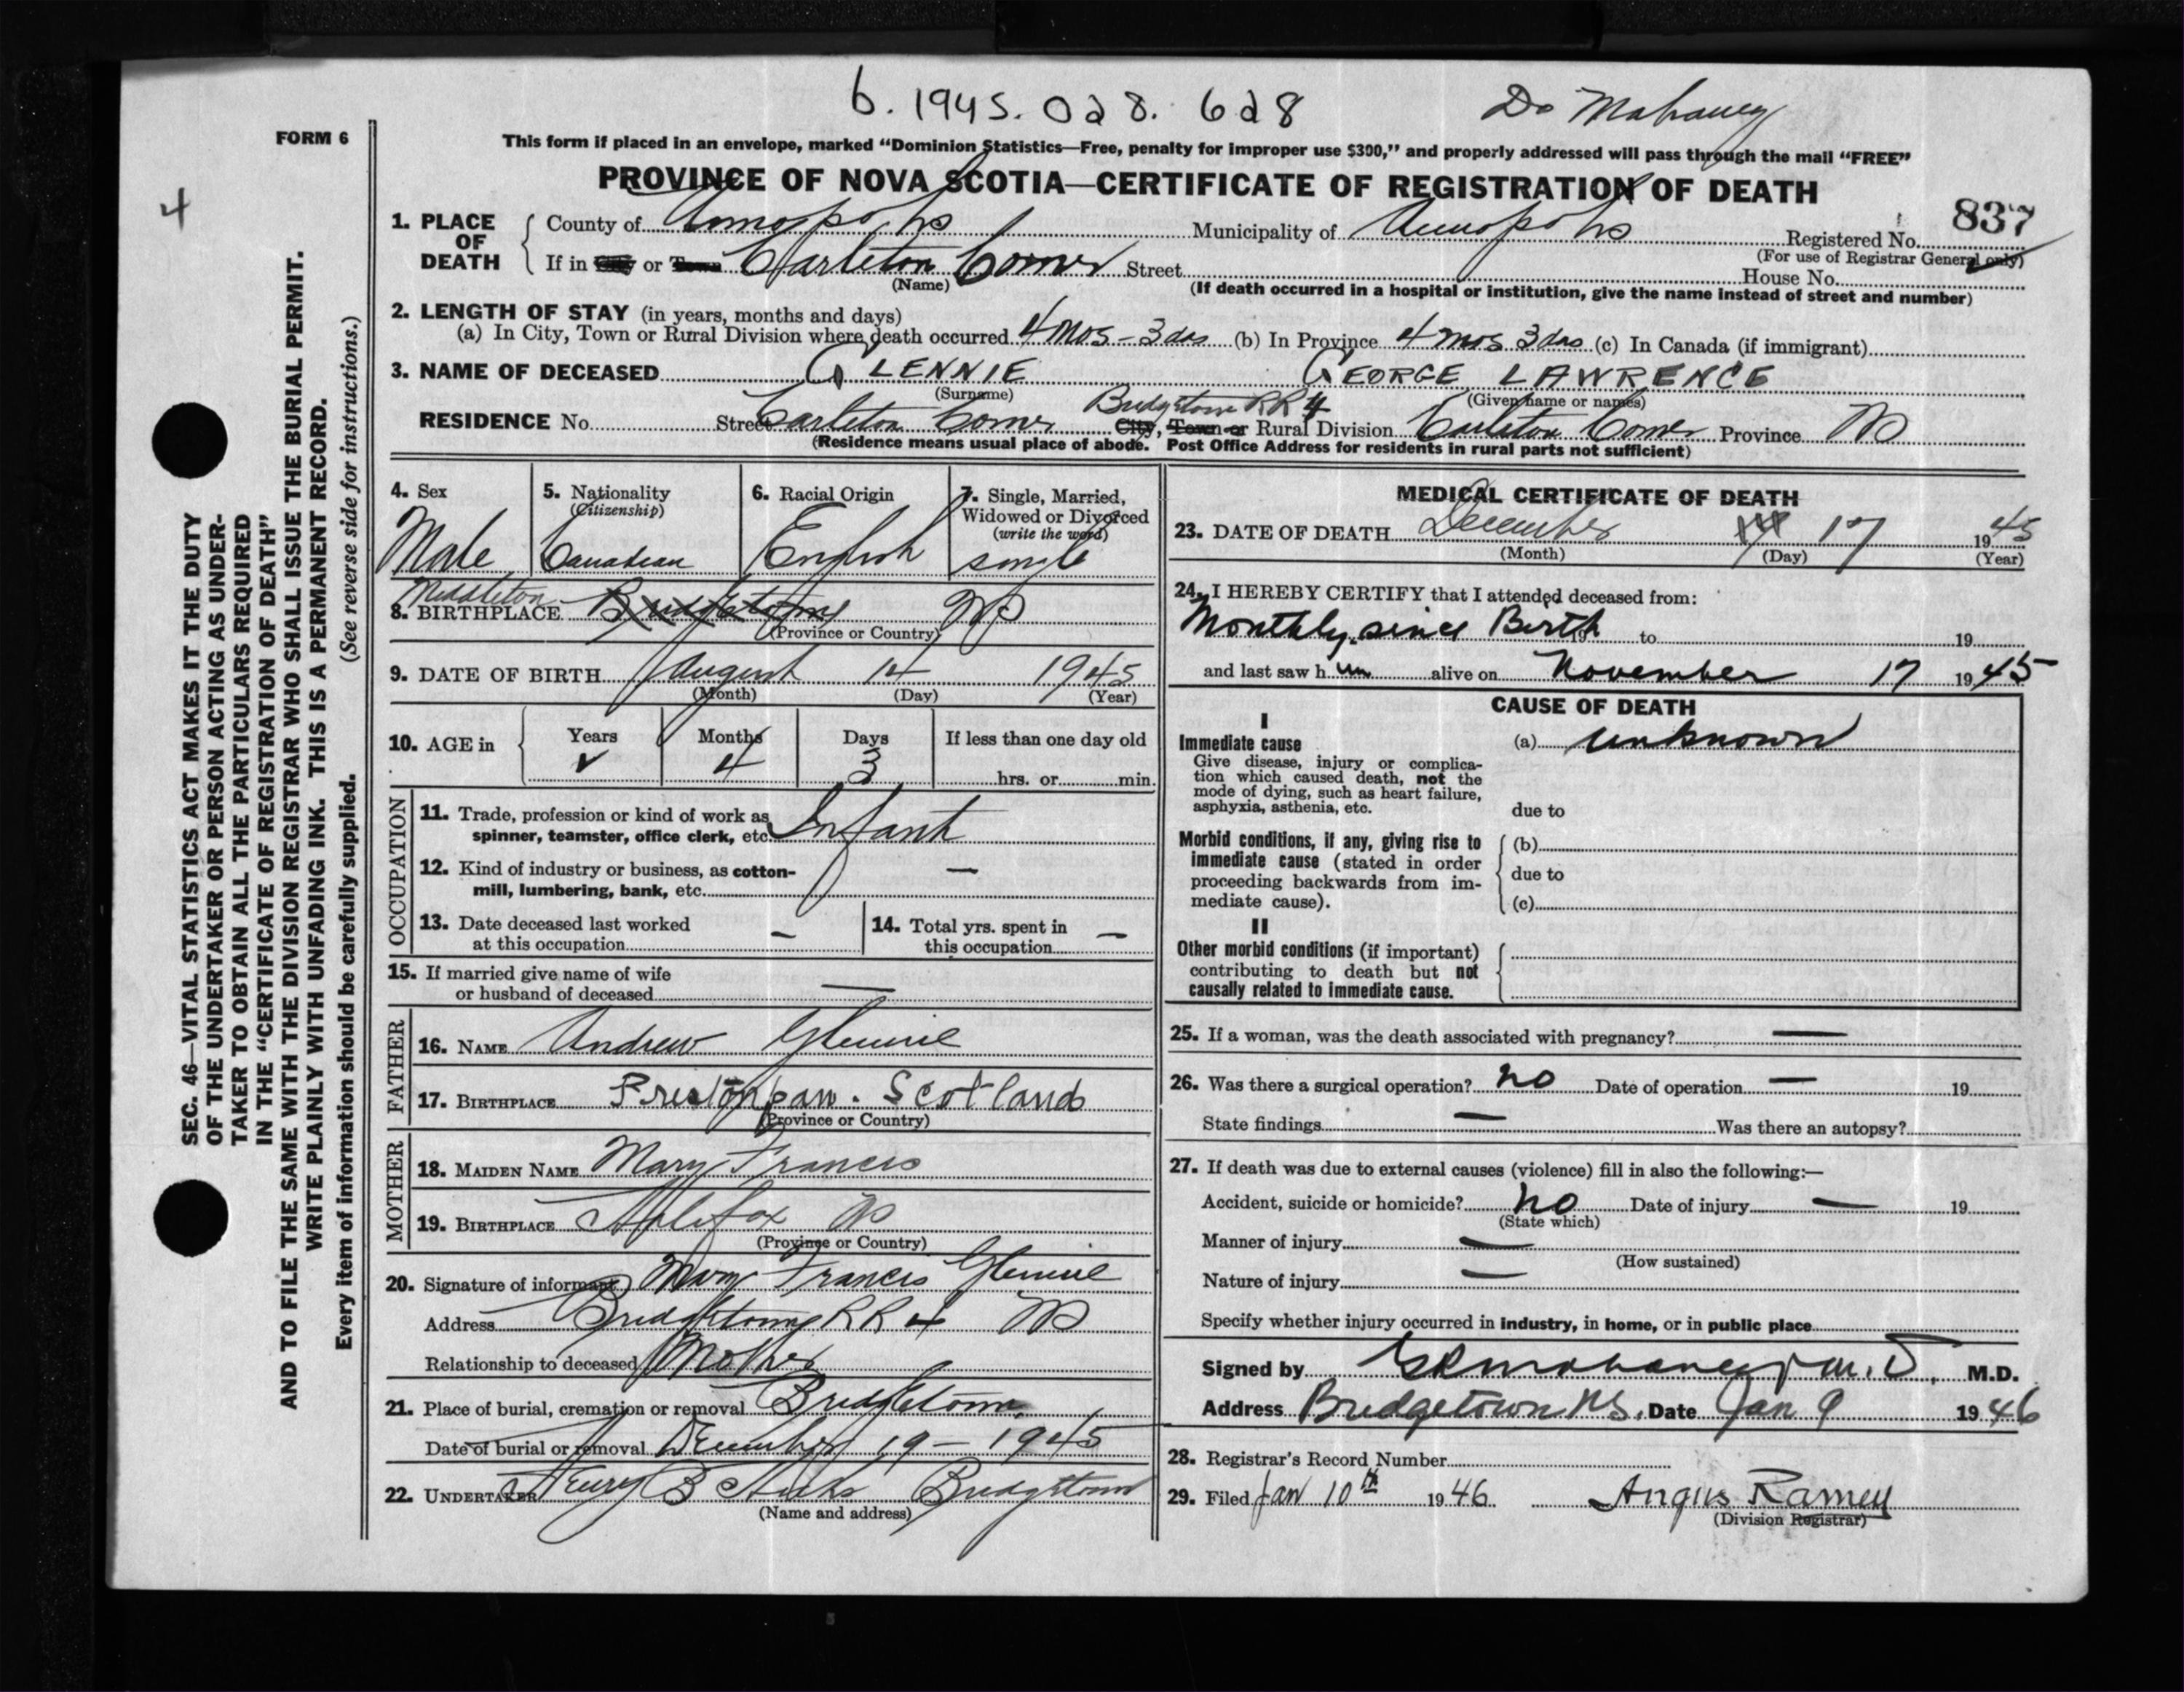 b. 1945. 028. 628 Dr Mahaney
FORM 6
This form if placed in an envelope, marked "Dominion Statistics—Free, penalty for improper use $300," and properly addressed will pass through the mail "FREE"
PROVINCE OF NOVA SCOTIA—CERTIFICATE OF REGISTRATION OF DEATH
4
837
1. PLACE OF DEATH
County of Annapolis Municipality of Annapolis Registered No.
(For use of Registrar General only)
If in City or Town Carleton Corner Street House No.
(Name)
(If death occurred in a hospital or institution, give the name instead of street and number)
2. LENGTH OF STAY (in years, months and days)
(a) In City, Town or Rural Division where death occurred 4 mos - 3 das (b) In Province 4 mos 3 das (c) In Canada (if immigrant)
3. NAME OF DECEASED GLENNIE GEORGE LAWRENCE
(Surname) (Given name or names)
Bridgetown RR 4
RESIDENCE No. Street Carleton Corner City, Town or Rural Division Carleton Corner Province NS
(Residence means usual place of abode. Post Office Address for residents in rural parts not sufficient)
SEC. 46—VITAL STATISTICS ACT MAKES IT THE DUTY
OF THE UNDERTAKER OR PERSON ACTING AS UNDER-
TAKER TO OBTAIN ALL THE PARTICULARS REQUIRED
IN THE "CERTIFICATE OF REGISTRATION OF DEATH"
AND TO FILE THE SAME WITH THE DIVISION REGISTRAR WHO SHALL ISSUE THE BURIAL PERMIT.
WRITE PLAINLY WITH UNFADING INK. THIS IS A PERMANENT RECORD.
Every item of information should be carefully supplied. (See reverse side for instructions.)
4. Sex
Male
5. Nationality
(Citizenship)
Canadian
6. Racial Origin
English
7. Single, Married,
Widowed or Divorced
(write the word)
single
Middleton
8. BIRTHPLACE Bridgetown NS
(Province or Country)
9. DATE OF BIRTH August 14 1945
(Month) (Day) (Year)
10. AGE in
Years Months Days If less than one day old
4 3 hrs. or min.
OCCUPATION
11. Trade, profession or kind of work as
spinner, teamster, office clerk, etc. Infant
12. Kind of industry or business, as cotton-
mill, lumbering, bank, etc. —
13. Date deceased last worked
at this occupation —
14. Total yrs. spent in
this occupation —
15. If married give name of wife
or husband of deceased —
FATHER
16. NAME Andrew Glennie
17. BIRTHPLACE Prestonpan. Scotland
(Province or Country)
MOTHER
18. MAIDEN NAME Mary Francis
19. BIRTHPLACE Halifax NS
(Province or Country)
20. Signature of informant Mary Francis Glennie
Address Bridgetown RR 4 NS
Relationship to deceased Mother
21. Place of burial, cremation or removal Bridgetown
Date of burial or removal December 19 - 1945
22. UNDERTAKER Henry B Hicks Bridgetown
(Name and address)
MEDICAL CERTIFICATE OF DEATH
23. DATE OF DEATH December 17 1945
(Month) (Day) (Year)
24. I HEREBY CERTIFY that I attended deceased from:
Monthly since Birth 19 to 19
and last saw h im alive on November 17 1945
CAUSE OF DEATH
I
Immediate cause
Give disease, injury or complica-
tion which caused death, not the
mode of dying, such as heart failure,
asphyxia, asthenia, etc.
(a) unknown
due to
Morbid conditions, if any, giving rise to
immediate cause (stated in order
proceeding backwards from im-
mediate cause).
(b)
due to
(c)
II
Other morbid conditions (if important)
contributing to death but not
causally related to immediate cause.
25. If a woman, was the death associated with pregnancy? —
26. Was there a surgical operation? no Date of operation — 19
State findings — Was there an autopsy?
27. If death was due to external causes (violence) fill in also the following:—
Accident, suicide or homicide? no Date of injury — 19
(State which)
Manner of injury —
(How sustained)
Nature of injury —
Specify whether injury occurred in industry, in home, or in public place
Signed by Mahaney M.D. M.D.
Address Bridgetown NS. Date Jan 9 1946
28. Registrar's Record Number
29. Filed Jan 10th 1946 Angus Ramey
(Division Registrar)